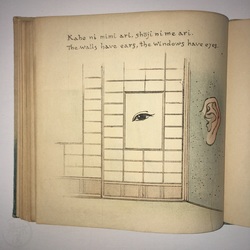 Kabe ni mimi ari, shoji ni me ari.
The walls have ears, the windows have eyes.